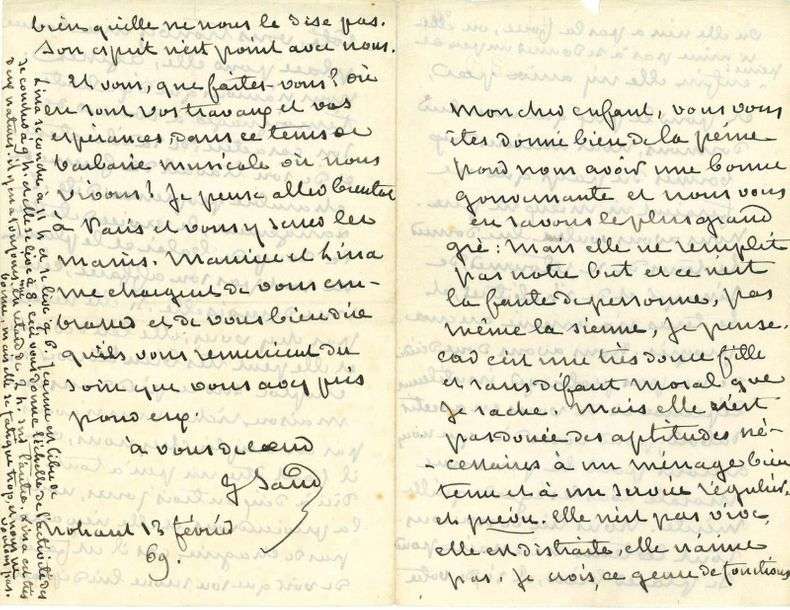 bien qu'elle ne nous le dise pas.
Son esprit n'est point avec nous.
Et vous, que faites-vous? où
en sont vos travaux et vos
espérances dans ce tems de
barbarie musicale où nous
vivons! Je pense aller bientot
à Paris et vous y serrer les
mains. Maurice et Lina
me chargent de vous em-
brasser et de vous bien dire
qu'ils vous remercient du
soin que vous avez pris
pour eux.
à vous de cœur
G Sand
Nohant 13 février
69.
Lina se couche à 11 h. et se lève à 6. Jeanne est libre de
se coucher à 9 h. et elle se lève à 8. ceci vous donne l'échelle de l'activité des
deux natures. il y en a toujours une en retard de 2 h. sur l'autre. Lina est très
bonne, mais elle se fatigue trop, et nous ne
voulons pas.
Mon cher enfant, vous vous
êtes donné bien de la peine
pour nous avoir une bonne
gouvernante et nous vous
en savons le plus grand
gré: Mais elle ne remplit
pas notre but et ce n'est
la faute de personne, pas
même la sienne, je pense.
car c'est une très douce fille
et sans défaut moral que
je sache. Mais elle n'est
pas douée des aptitudes né-
-cessaires à un ménage bien
tenu et à un service régulier
et prévu. elle n'est pas vive,
elle est distraite, elle n'aime
pas. Je crois, ce genre de fonctions